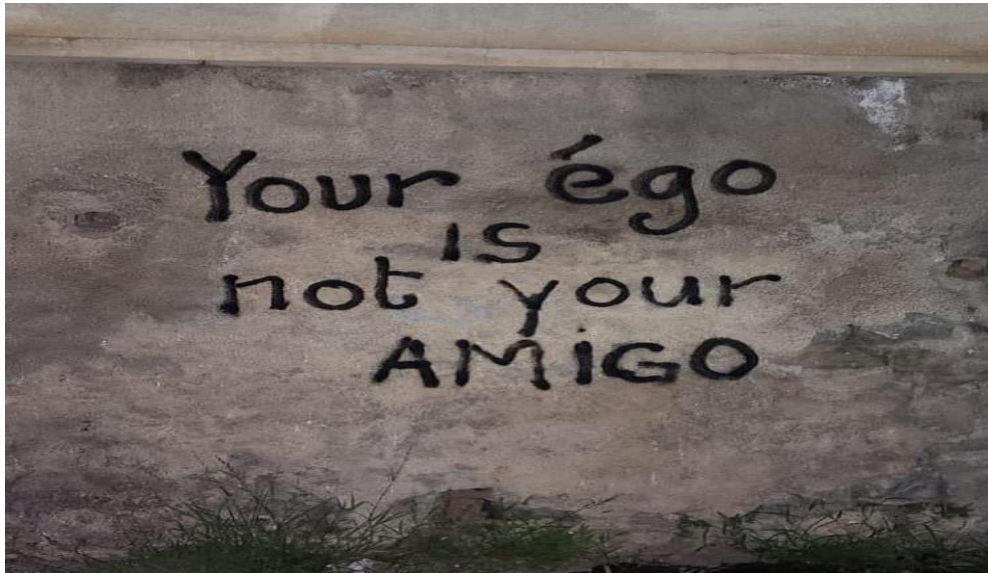 Your égo
is
not your
AMiGO